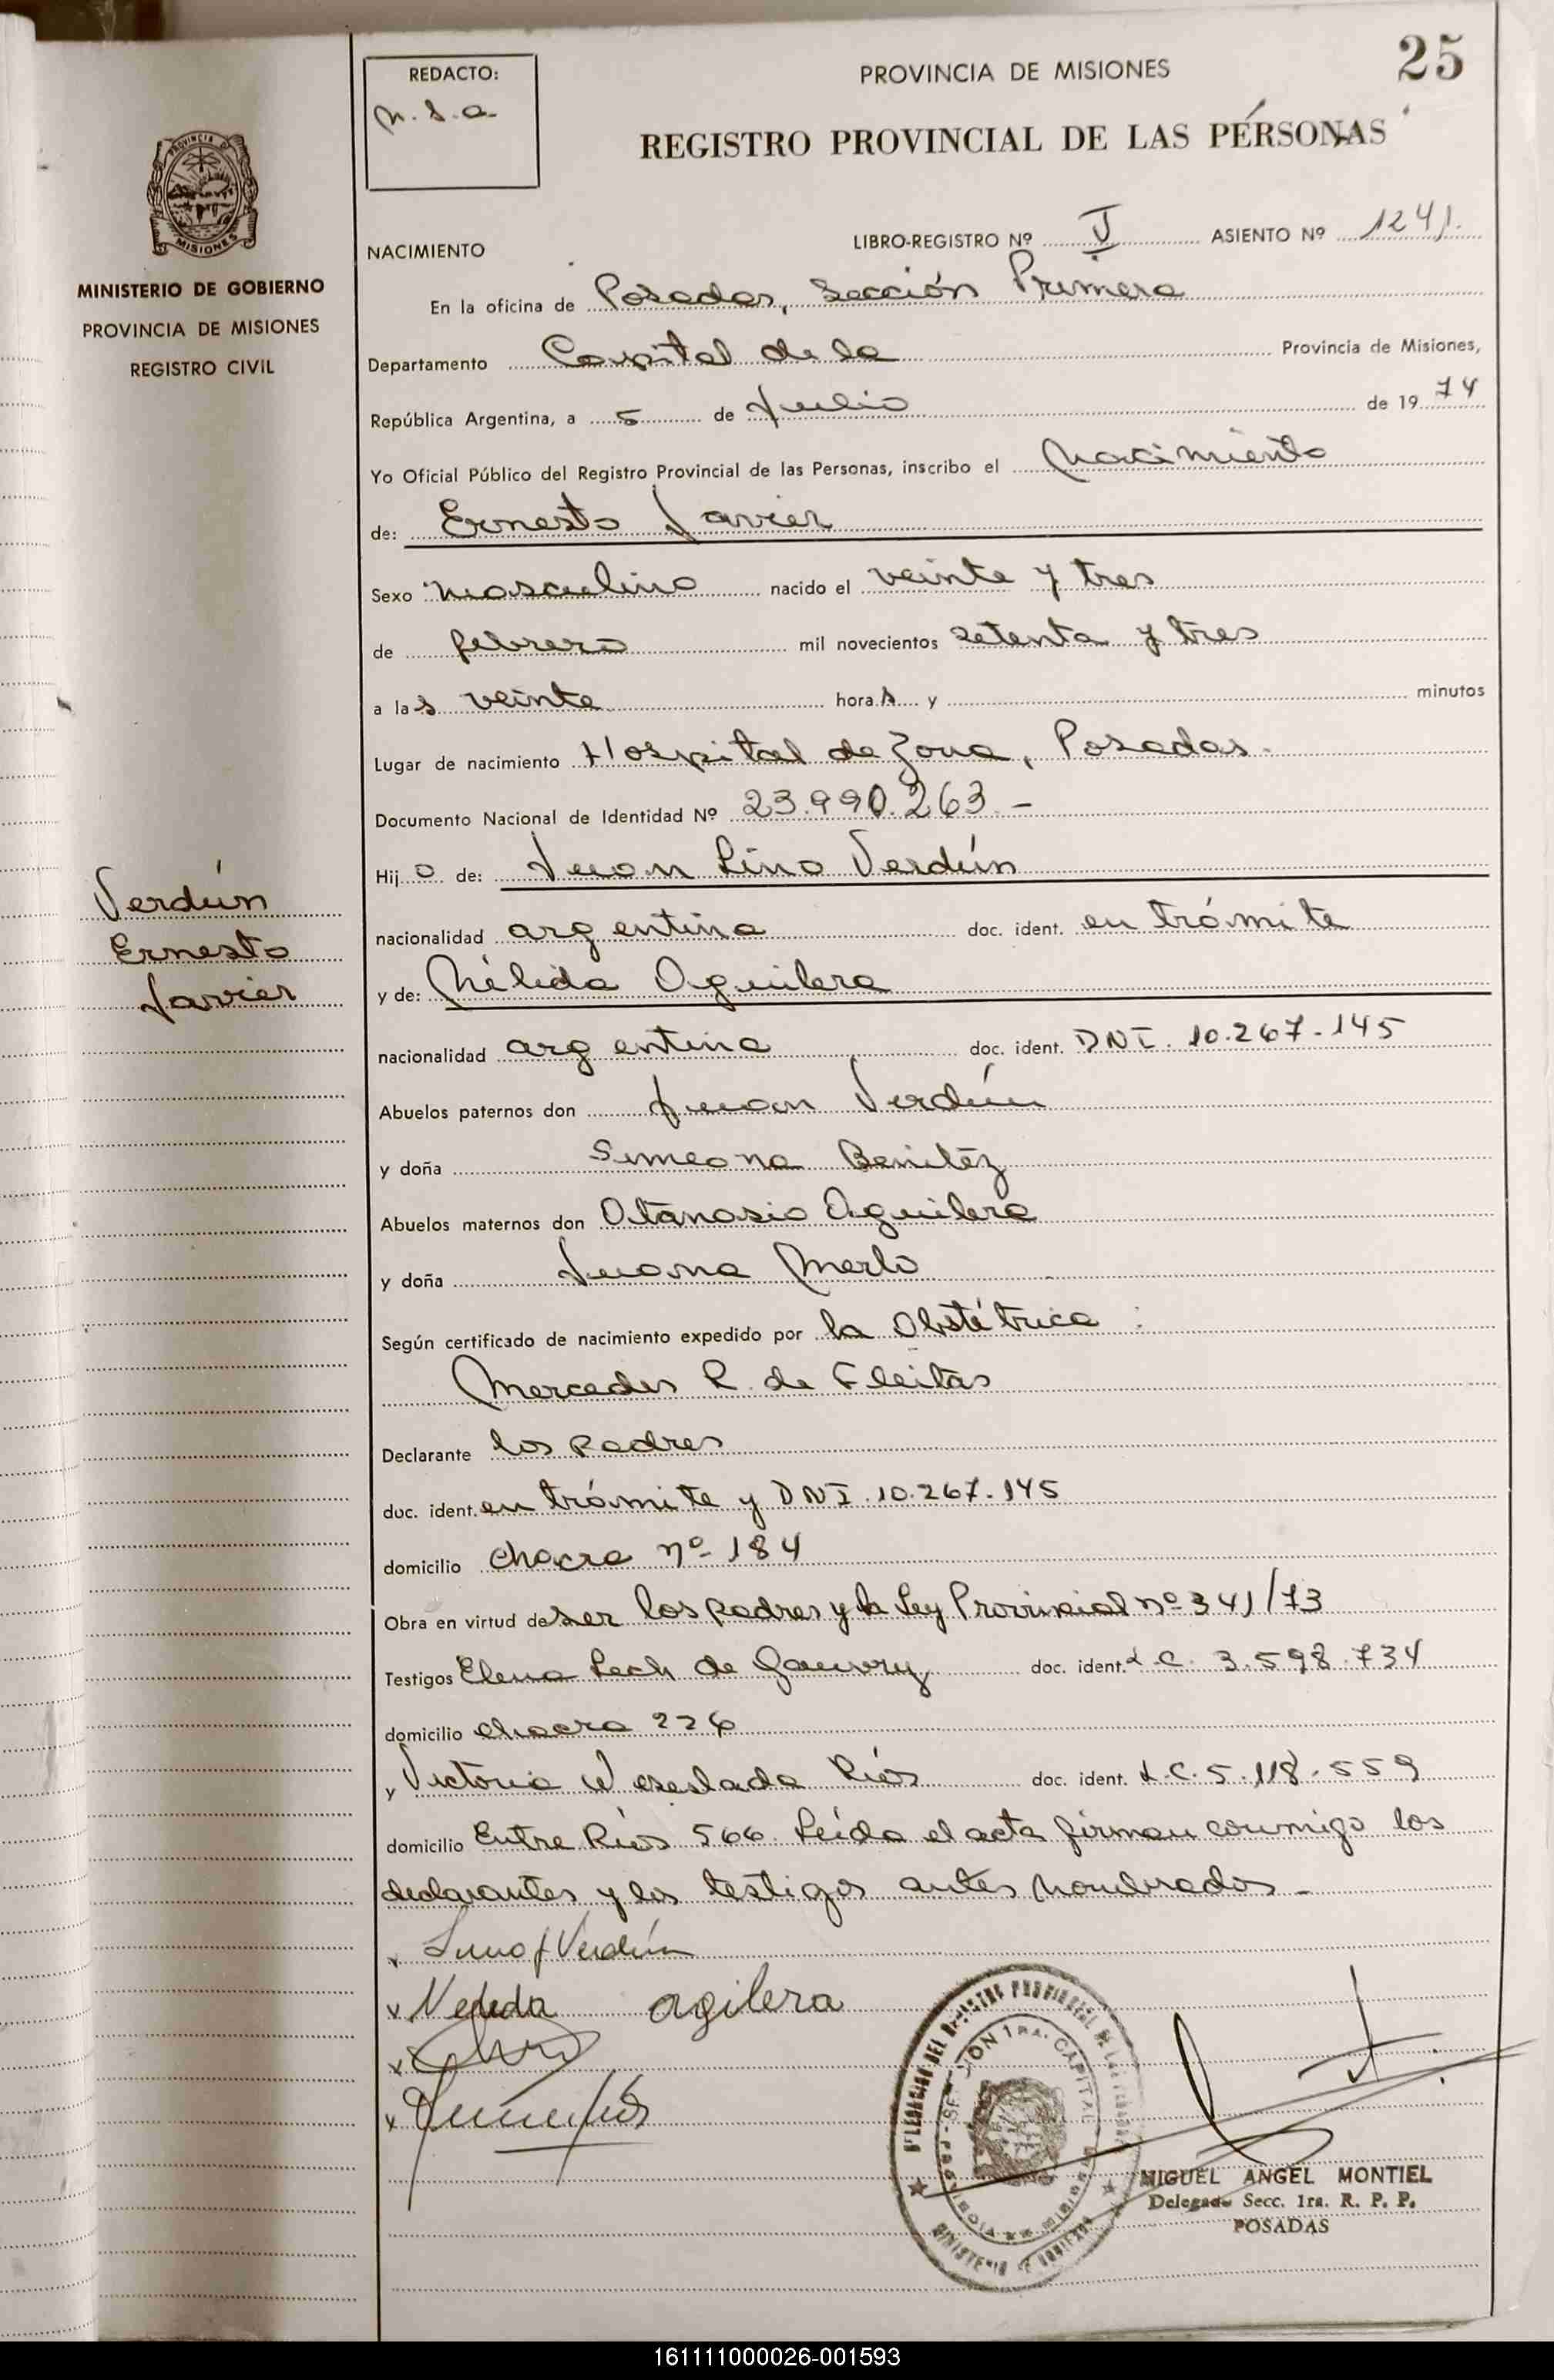 25
REDACTO:
PROVINCIA DE MISIONES
REGISTRO PROVINCIAL DE LAS PERSONAS
PROVINCIA DE
MISIONES
MINISTERIO DE GOBIERNO
PROVINCIA DE MISIONES
REGISTRO CIVIL
NACIMIENTO LIBRO-REGISTRO Nº V ASIENTO Nº 1241.
En la oficina de Posadas, Sección Primera
Departamento Capital de la Provincia de Misiones,
República Argentina, a 5 de Julio de 1974
Yo Oficial Público del Registro Provincial de las Personas, inscribo el Nacimiento
de: Ernesto Javier
Sexo masculino nacido el veinte y tres
de febrero mil novecientos setenta y tres
a las veinte horas y minutos
Lugar de nacimiento Hospital de Zona, Posadas.
Documento Nacional de Identidad Nº 23.990.263.-
Hijo de: Juan Lino Verdún
Verdún
Ernesto
Javier
nacionalidad argentina doc. ident. en trámite
y de: Nélida Aguilera
nacionalidad argentina doc. ident. DNI. 10.267.145
Abuelos paternos don Juan Verdún
y doña Simeona Benítez
Abuelos maternos don Atanasio Aguilera
y doña Juana Merlo
Según certificado de nacimiento expedido por la Obstétrica:
Mercedes R. de Fleitas
Declarante los padres
doc. ident. en trámite y DNI. 10.267.145
domicilio chacra nº 184
Obra en virtud de ser los padres y la Ley Provincial nº 341/73
Testigos Elena Lech de doc. ident. L.C. 3.598.734
domicilio chacra 226
y Victoria Ríos doc. ident. L.C. 5.118.559
domicilio Entre Ríos 566. Leída el acta firman conmigo los
declarantes y los testigos antes nombrados.-
x Verdún
x Nelida agilera
x
x
MIGUEL ANGEL MONTIEL
Delegado Secc. 1ra. R. P. P.
POSADAS
161111000026-001593